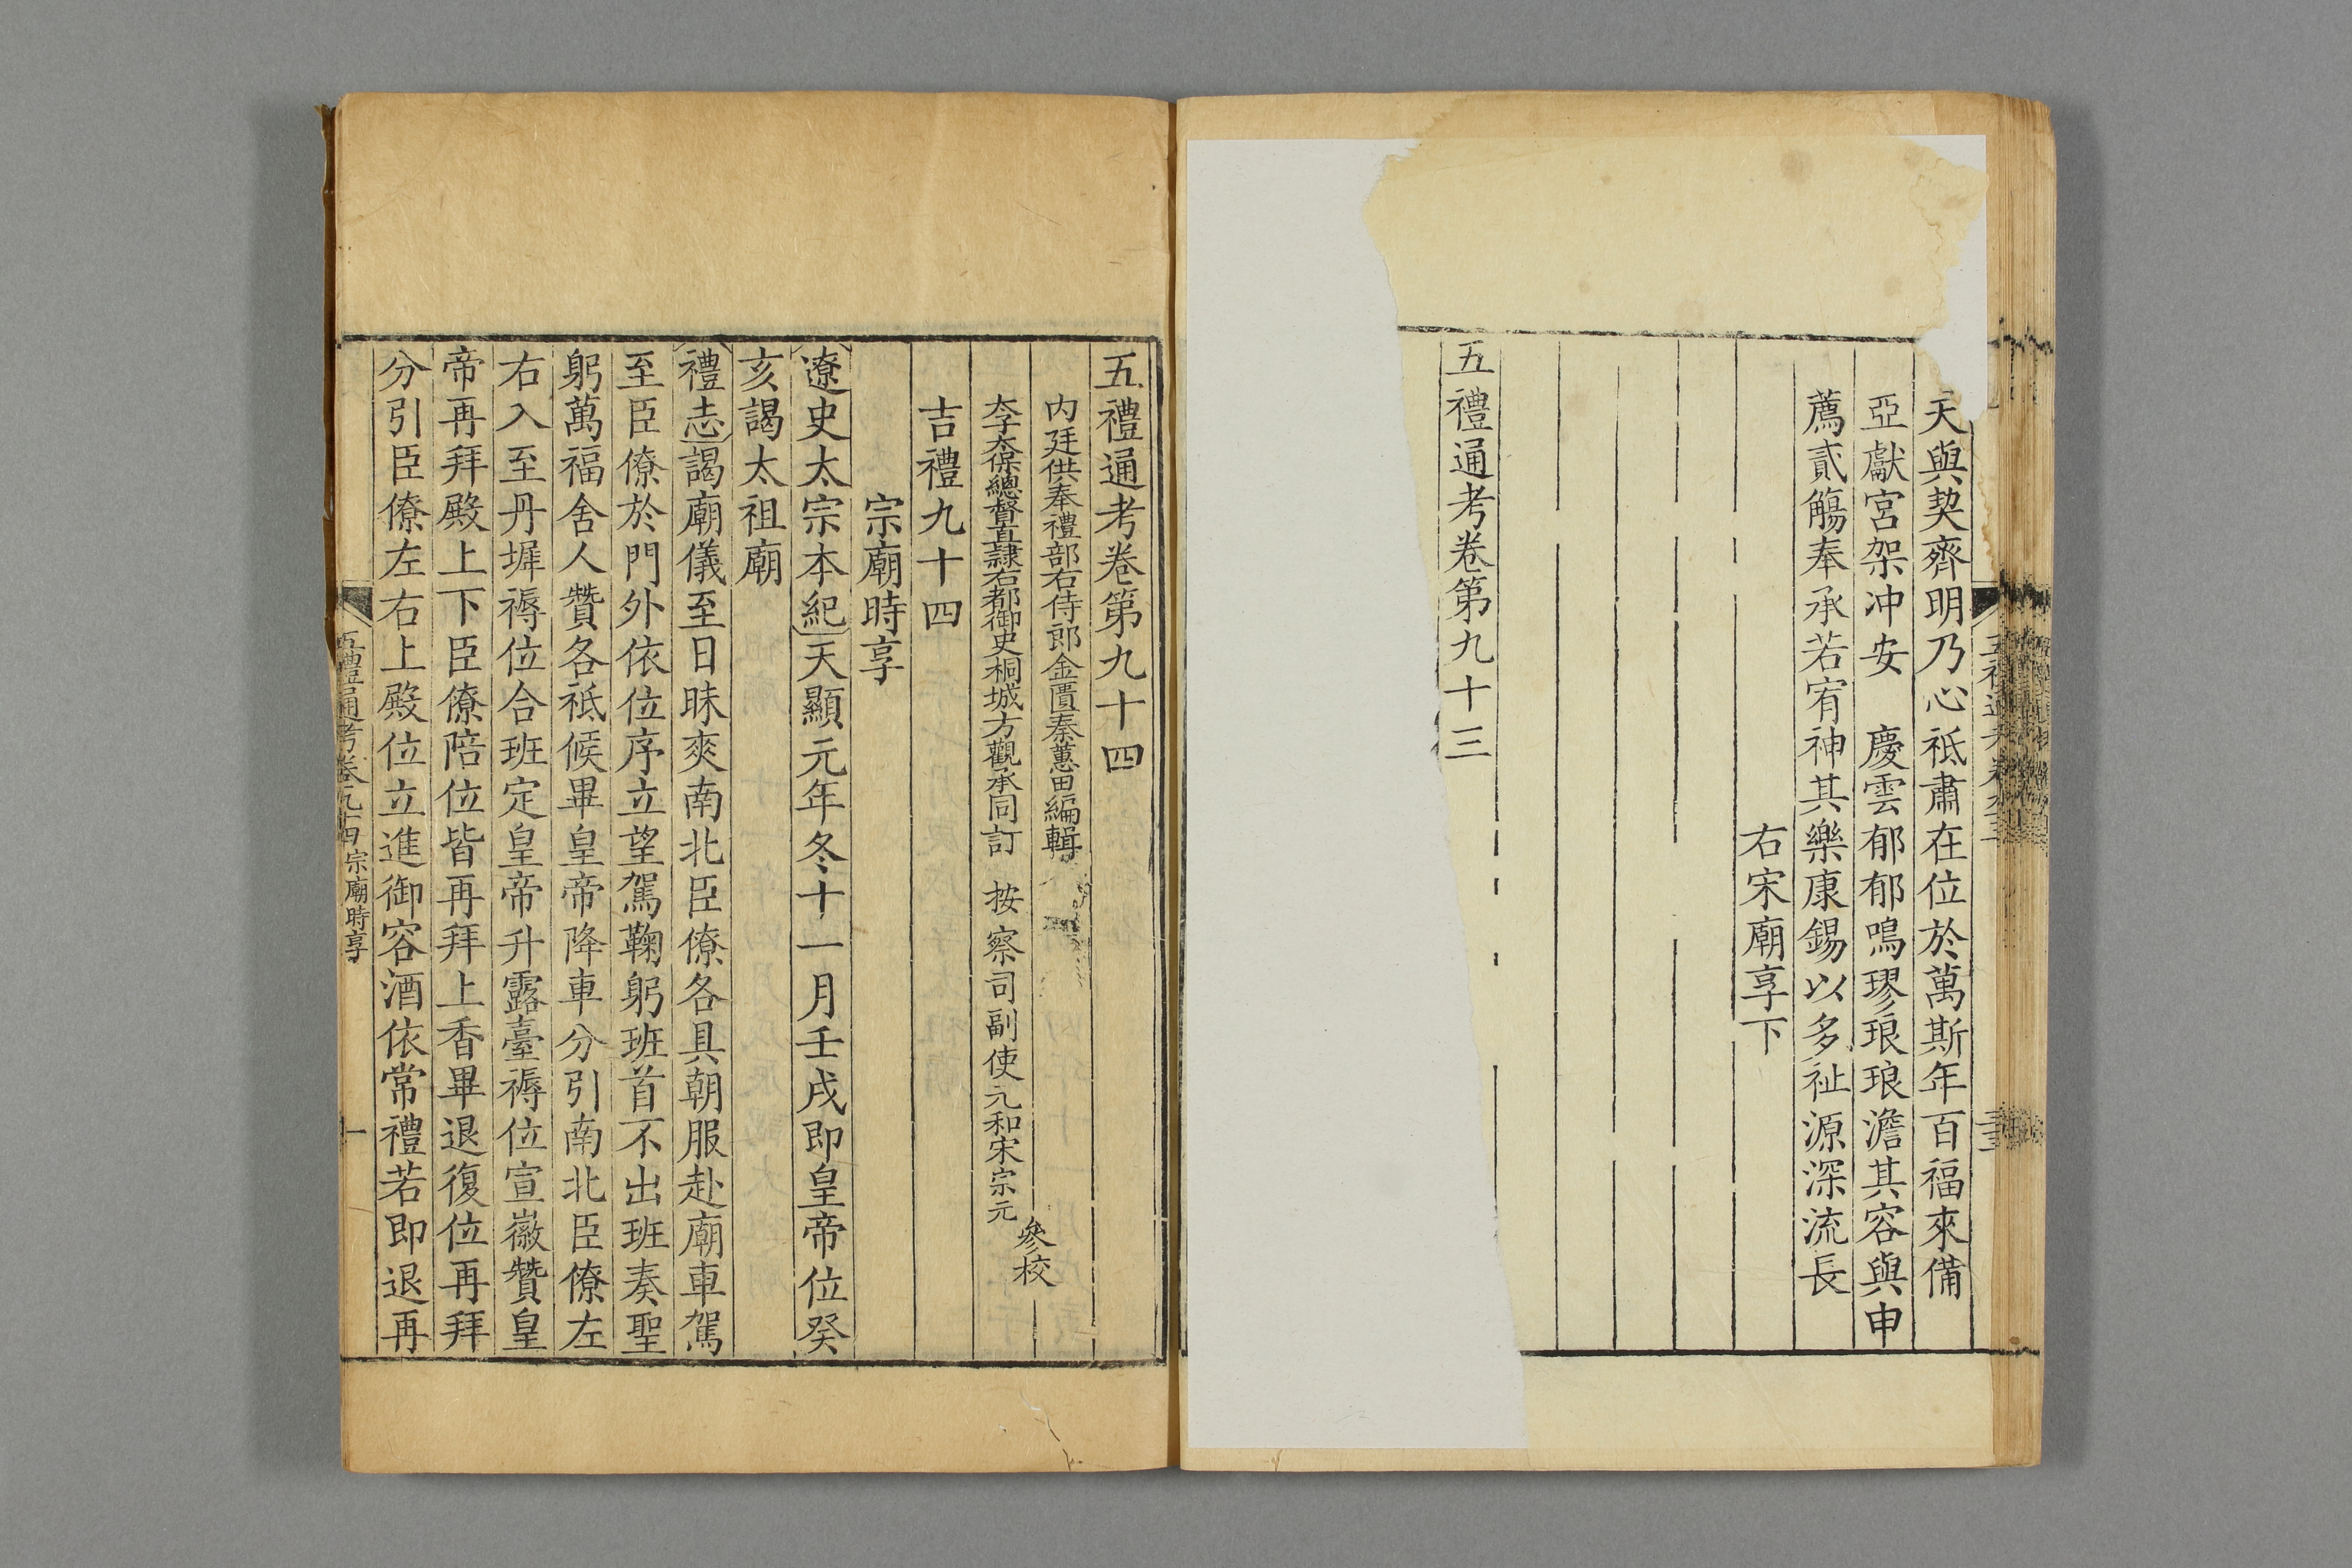 天與契齊明乃心祗肅在位於萬斯年百福來備
亞獻宮架冲安　慶雲郁郁鳴璆琅琅澹其容與申
薦貳觴奉承若宥神其樂康錫以多祉源深流長
右宋廟享下
五禮通考卷第九十三
五禮通考卷第九十四
内廷供奉禮部右侍郎金匱秦蕙田編輯
太子太保總督直隸右都御史桐城方觀承同訂　按察司副使元和宋宗元
參校
吉禮九十四
宗廟時享
遼史太宗本紀天顯元年冬十一月壬戌即皇帝位癸
亥謁太祖廟
禮志謁廟儀至日昧爽南北臣僚各具朝服赴廟車駕
至臣僚於門外依位序立望駕鞠躬班首不出班奏聖
躬萬福舍人贊各祗候畢皇帝降車分引南北臣僚左
右入至丹墀褥位合班定皇帝升露臺褥位宣徽贊皇
帝再拜殿上下臣僚陪位皆再拜上香畢退復位再拜
分引臣僚左右上殿位立進御容酒依常禮若即退再
五禮通考卷九十四　宗廟時享
一